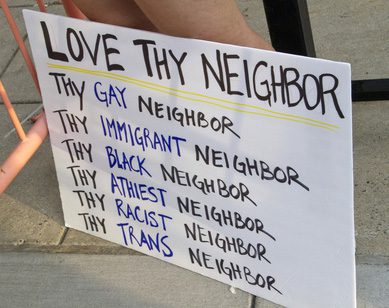 LOVE THY NEIGHBOR
THY GAY NEIGHBOR
THY IMMIGRANT NEIGHBOR
THY BLACK NEIGHBOR
THY ATHIEST NEIGHBOR
THY RACIST NEIGHBOR
THY TRANS NEIGHBOR